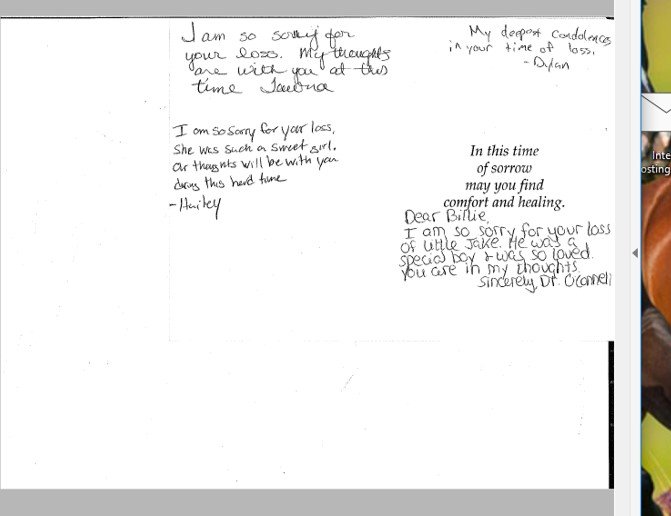 I am so sorry for
your loss. My thoughts
are with you at this
time
My deepest condolences
in your time of loss.
- Dylan
I am so sorry for your loss,
She was such a sweet girl.
Our thoughts will be with you
during this hard time
- Hailey
In this time
of sorrow
may you find
comfort and healing.
Dear Billie,
I am so sorry for your loss
of little Jake. He was a
special boy & was so loved.
You are in my thoughts
Sincerely, Dr. O'Connell
Inte
osting